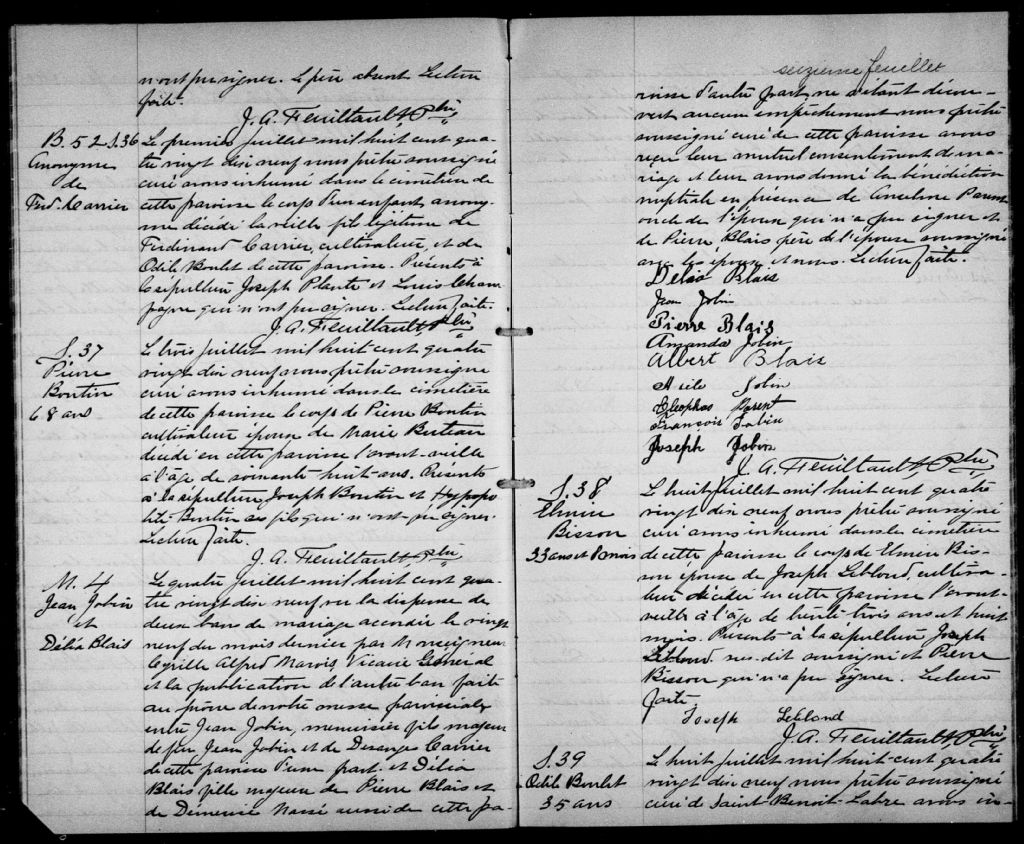 n'ont pu signer. Le père absent Lecture
faite.
J. A. Feuiltault Ptre
B. 52 S. 36
Anonyme
de
Ferd. Carrier
Le premier juillet mil huit cent qua-
tre vingt dix neuf nous prêtre soussigné
curé avons inhumé dans le cimetière de
cette paroisse le corps d'un enfant anony-
me décédé la veille fils légitime de
Ferdinand Carrier, cultivateur, et de
Odile Boulet de cette paroisse. Présents à
la sépulture Joseph Plante et Louis Cham-
pagne qui n'ont pu signer. Lecture faite.
J. A. Feuiltault Ptre
S. 37
Pierre
Boutin
68 ans
Le trois juillet mil huit cent quatre
vingt dix neuf nous prêtre soussigné
curé avons inhumé dans le cimetière
de cette paroisse le corps de Pierre Boutin
cultivateur époux de Marie Buteau
décédé en cette paroisse l'avant-veille
à l'âge de soixante huit ans. Présents
à la sépulture Joseph Boutin et Hyppo
lite Boutin ses fils qui n'ont pu signer.
Lecture faite.
J. A. Feuiltault, Ptre
M. 4
Jean Jobin
et
Délia Blais
Le quatre juillet mil huit cent qua-
tre vingt dix neuf vu la dispense de
deux bans de mariage accordée le vingt
neuf du mois dernier par Monseigneur
Cyrille Alfred Marois, Vicaire Général
et la publication de l'autre ban faite
au prône de notre messe paroissiale
entre Jean Jobin, menuisier fils majeur
de feu Jean Jobin et de Desanges Carrier
de cette paroisse d'une part, et Délia
Blais fille majeure de Pierre Blais et
de Démerise Massé aussi de cette pa-
suzieme feuillet
roisse d'autre part, ne s'étant décou-
vert aucun empêchement nous prêtre
soussigné curé de cette paroisse avons
reçu leur mutuel consentement de ma-
riage et leur avons donné la bénédiction
nuptiale en présence de Anselme Parent
oncle de l'époux qui n'a pu signer et
de Pierre Blais père de l'épouse soussigné
avec les époux et nous. Lecture faite.
Délia Blais
Jean Jobin
Pierre Blais
Amanda Jobin
Albert Blais
Jobin
Cléophas Parent
François Jobin
Joseph Jobin
J. A. Feuiltault, Ptre
S. 38
Elmire
Bisson
33 ans et 8 mois
Le huit juillet mil huit cent quatre
vingt dix neuf nous prêtre soussigné
curé avons inhumé dans le cimetière
de cette paroisse le corps de Elmire Bis-
son épouse de Joseph Leblond, cultiva-
teur décédée en cette paroisse l'avant-
veille à l'âge de trente trois ans et huit
mois. Présents à la sépulture Joseph
Leblond susdit soussigné et Pierre
Bisson qui n'a pu signer. Lecture
faite
Joseph Leblond
J. A. Feuiltault, Ptre
S. 39
Odile Boulet
35 ans
Le huit juillet mil huit cent quatre
vingt dix neuf nous prêtre soussigné
curé de Saint-Benoit-Labre avons in-